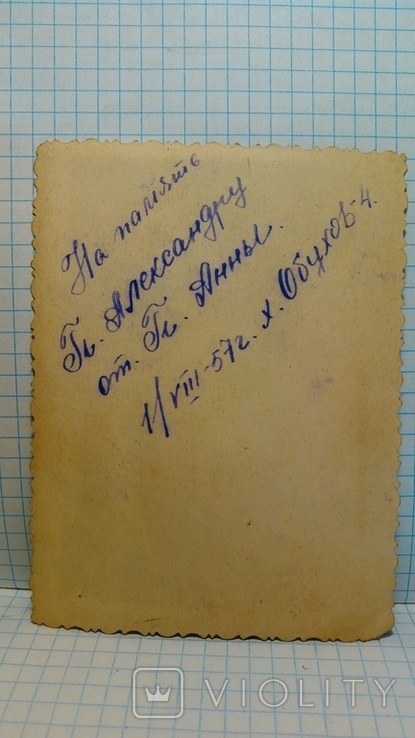 На память
Гл. Александру
от. Гл. Анны.
1/VIII-57г. х. Обухов-4.
VIOLITY